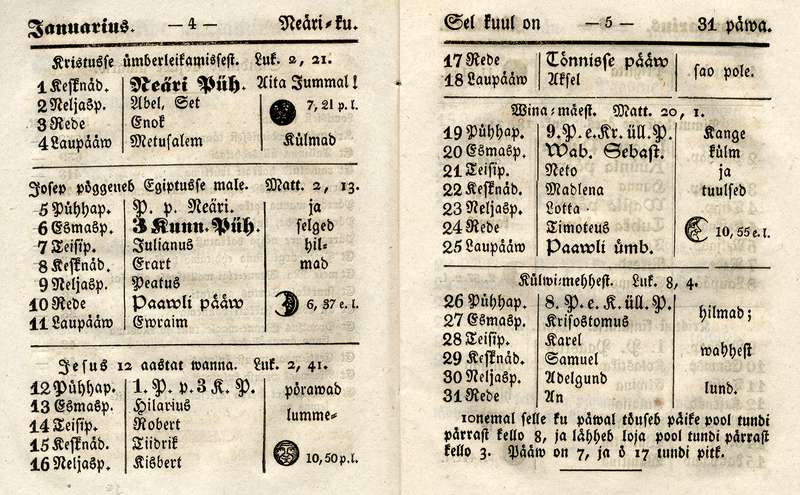 Januarius. — 4 — Neäri-ku.
Kristusse ümberleikamissest. Luk. 2, 21.
1 Kesknäd. Neäri Püh. Aita Jummal!
2 Neljasp. Abel, Set 7, 21 p. l.
3 Rede Enok
4 Laupääw Metusalem Külmad
Josep pöggeneb Egiptusse male. Matt. 2, 13.
5 Pühhap. P. p. Neäri. ja
6 Esmasp. 3 Kunn. Püh. selged
7 Teisip. Julianus hil-
8 Kesknäd. Erart mad
9 Neljasp. Peatus
10 Rede Paawli pääw 6, 37 e. l.
11 Laupääw Ewraim
Jesus 12 aastat wanna. Luk. 2, 41.
12 Pühhap. 1. P. p. 3 K. P. pörawad
13 Esmasp. Hilarius lumme-
14 Teisip. Robert
15 Kesknäd. Tiidrik
16 Neljasp. Kisbert 10, 50 p. l.
Sel kuul on — 5 — 31 päwa.
17 Rede Tönnisse pääw sao pole.
18 Laupääw Aksel
Wina-mäest. Matt. 20, 1.
19 Pühhap. 9. P. e. Kr. üll. P. Kange
20 Esmasp. Wab. Sebast. külm
21 Teisip. Neto ja
22 Kesknäd. Madlena tuulsed
23 Neljasp. Lotta
24 Rede Timoteus 10, 55 e. l.
25 Laupääw Paawli ümb.
Külwi-mehhest. Luk. 8, 4.
26 Pühhap. 8. P. e. K. üll. P. hilmad;
27 Esmasp. Krisostomus
28 Teisip. Karel wahhest
29 Kesknäd. Samuel
30 Neljasp. Adelgund lund.
31 Rede An
10nemal selle ku päwal töuseb päike pool tundi
pärrast kello 8, ja lähheb loja pool tundi pärrast
kello 3. Pääw on 7, ja ö 17 tundi pitk.